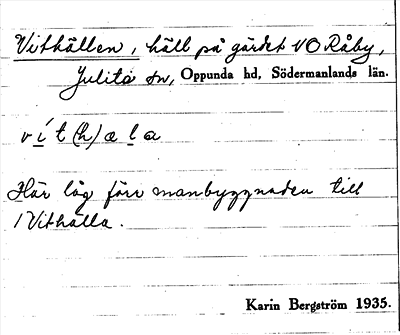 Vithällen, häll på gärdet VO Råby,
Julita sn, Oppunda hd, Södermanlands län.
v í t (h) a l a
Här låg förr manbyggnaden till
/ Vithälla.
Karin Bergström 1935.